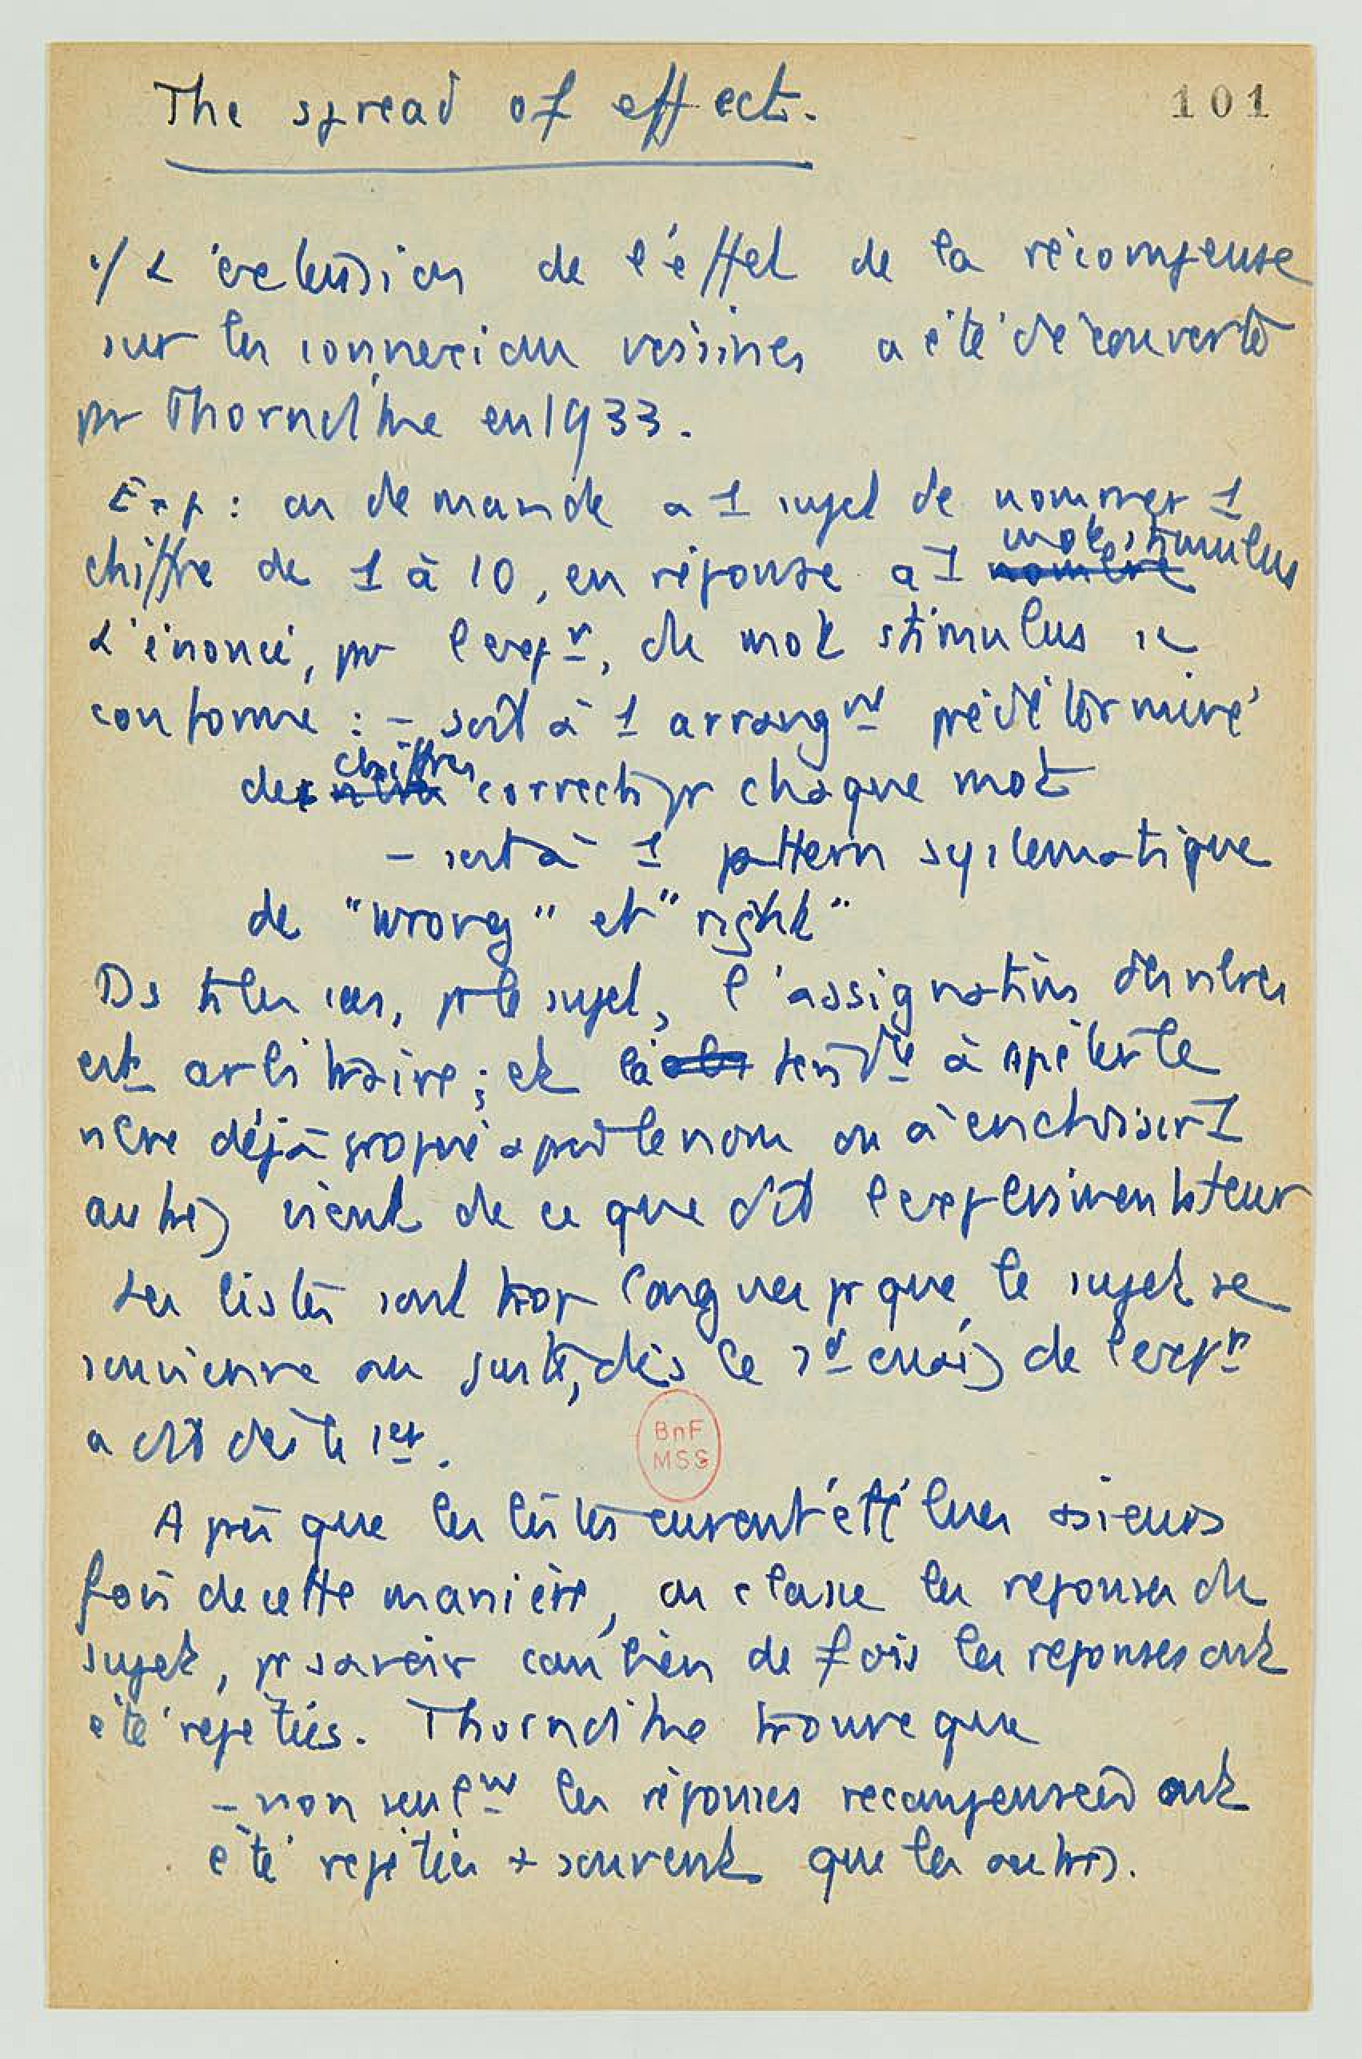 The spread of effect.
101
1/ L'extension de l'effet de la récompense
sur les connexions voisines a été découverte
pr Thorndike en 1933.
Exp : on demande a 1 sujet de nommer 1
chiffre de 1 à 10, en réponse a 1 nombre mot stimulus
L'énoncé, pr l'expr, du mot stimulus se
conforme : - soit à 1 arrangnt prédéterminé
des chiffres corrects pr chaque mot
- soit à 1 pattern systematique
de "wrong" et "right"
Ds ts les cas, pr le sujet, l'assignation des nbres
est arbitraire ; et la tendce à répéter le
nbre déjà proposé apud le nom ou à en choisir 1
autre) vient de ce que dit l'experimentateur
Les listes sont trop longues pr que le sujet se
souvienne au juste, dès le 2d essai, de l'expr
a dit dès le 1er.
BnF
MSS
Après que les listes eurent été lues +sieurs
fois de cette manière, on classe les reponses du
sujet, pr savoir combien de fois les reponses ont
été répétées. Thorndike trouve que
- non seulnt les réponses recompensées ont
été répétées + souvent que les autres.